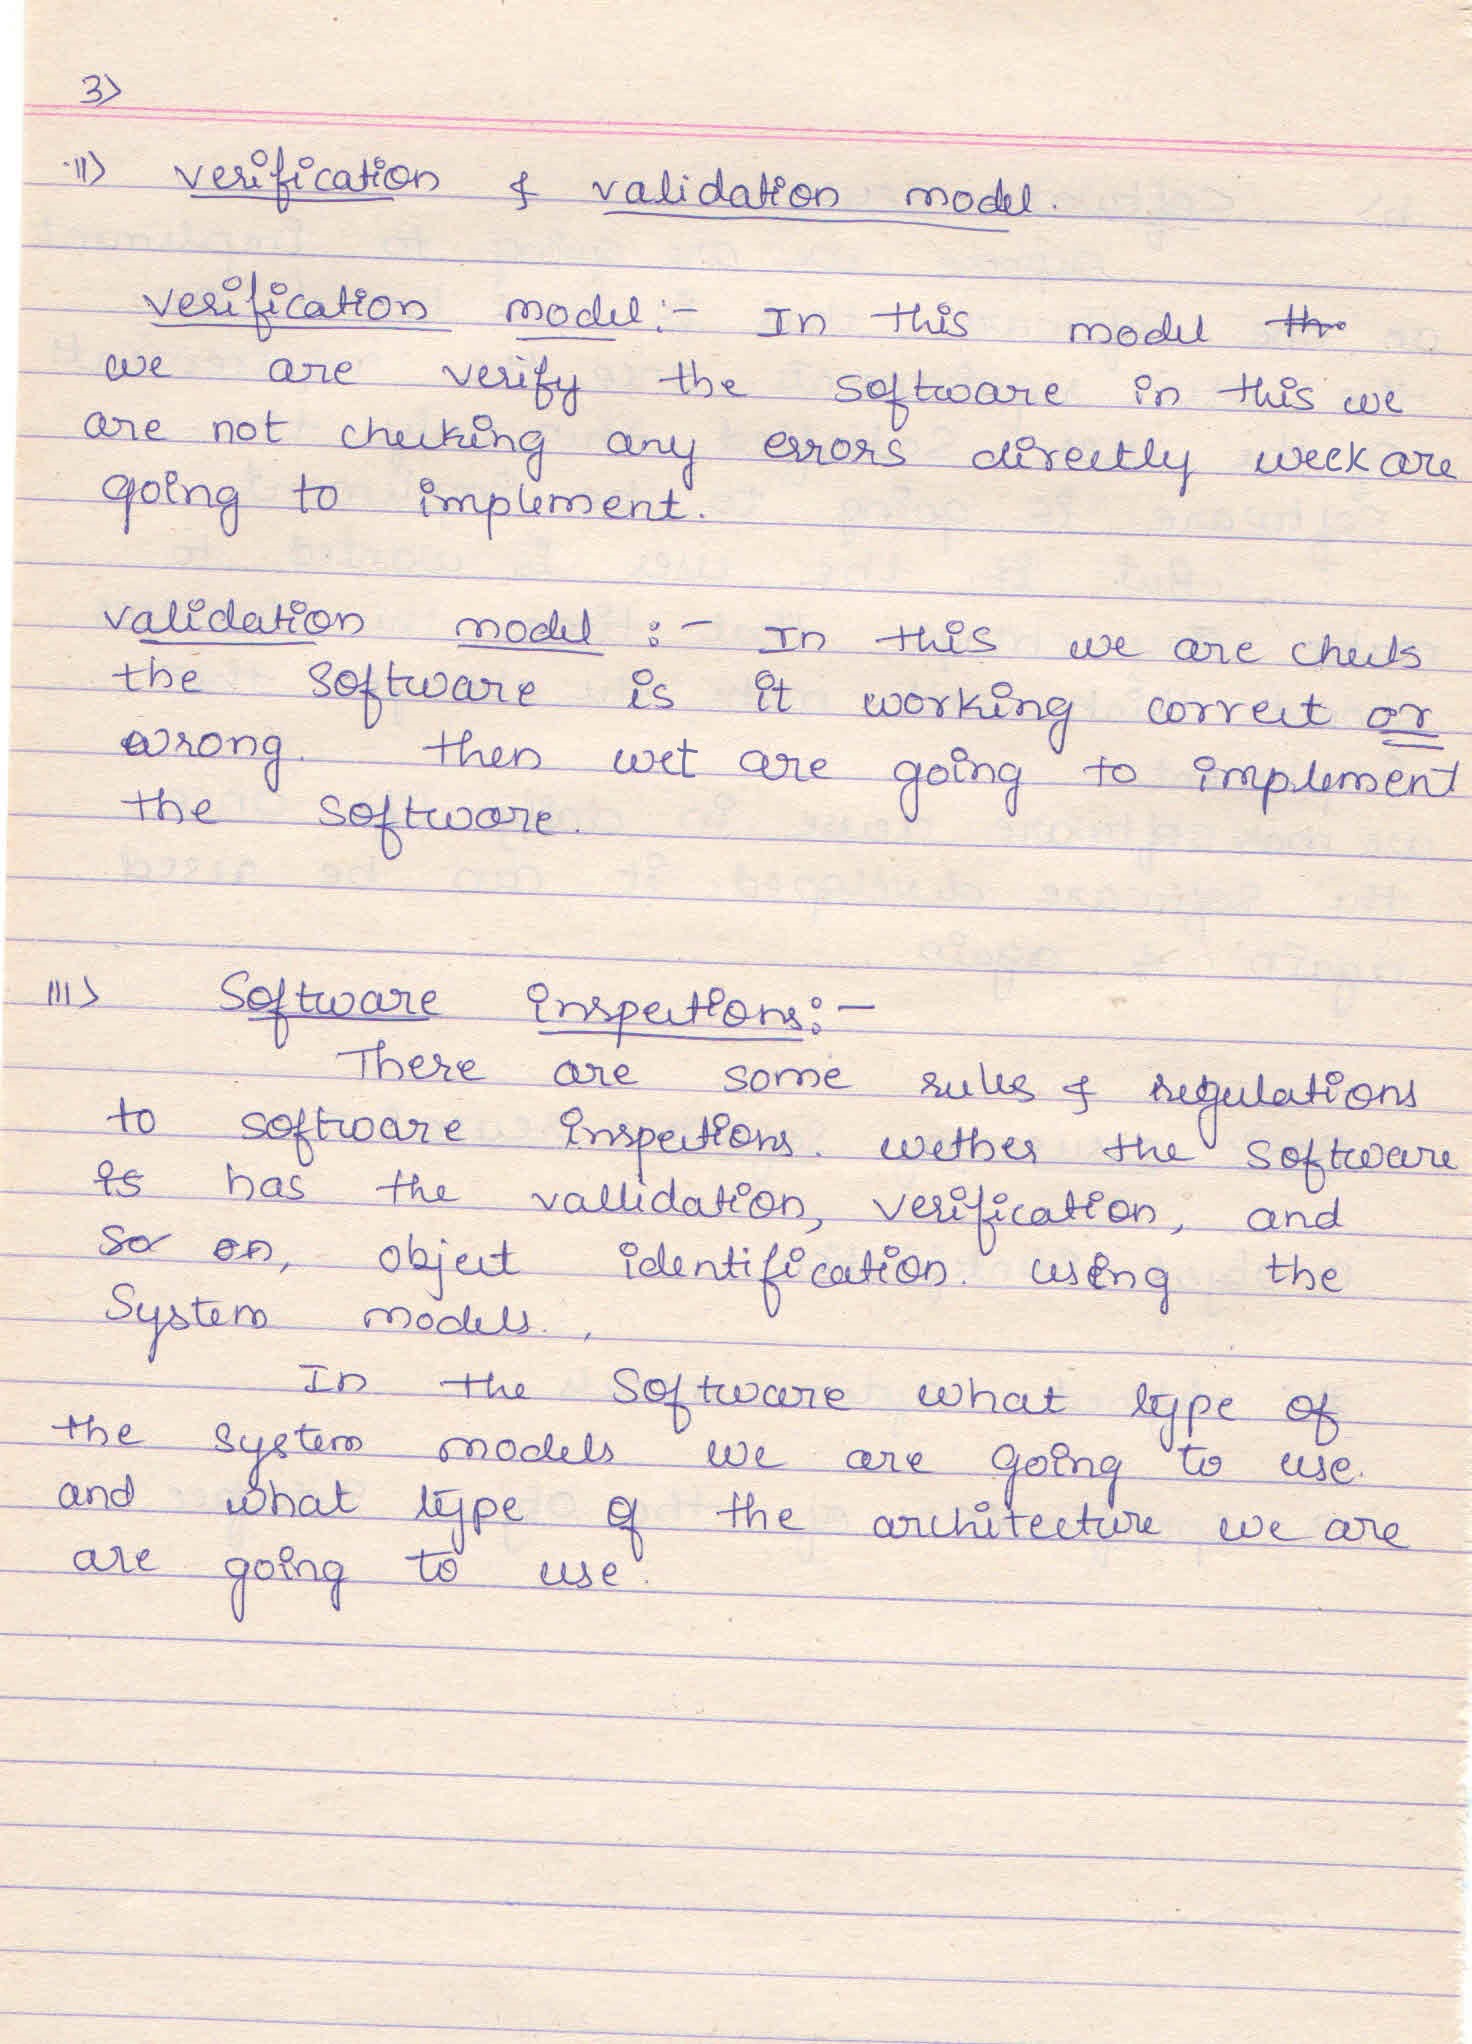 3)
ii) verification & validation model.
verification model:- In this model
we are verify the software in this we
are not checking any errors directly are
going to implement.
validation model :- In this we are check
the software is it working correct or
wrong. then wet are going to implement
the software.
iii) Software inspections:-
There are some rules & regulations
to software inspections. wether the software
is has the vallidation, verification, and
so on, object identification. using the
System models.
In the software what type of
the system models we are going to use.
and what type of the architecture we are
are going to use.